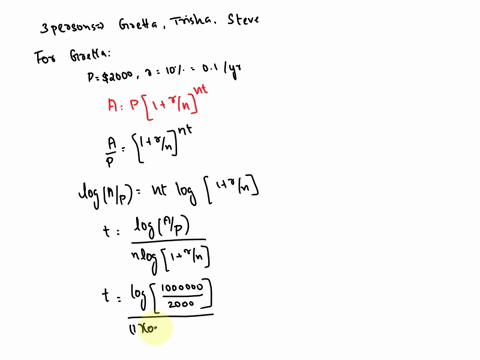 3 persons => Gretta, Trisha, Steve
For Gretta:
P = $2000, r = 10% = 0.1 /yr
A = P [1 + r/n]^nt
A/P = [1 + r/n]^nt
log (A/P) = nt log [1 + r/n]
t = log (A/P) / n log [1 + r/n]
t = log [1000000 / 2000] /